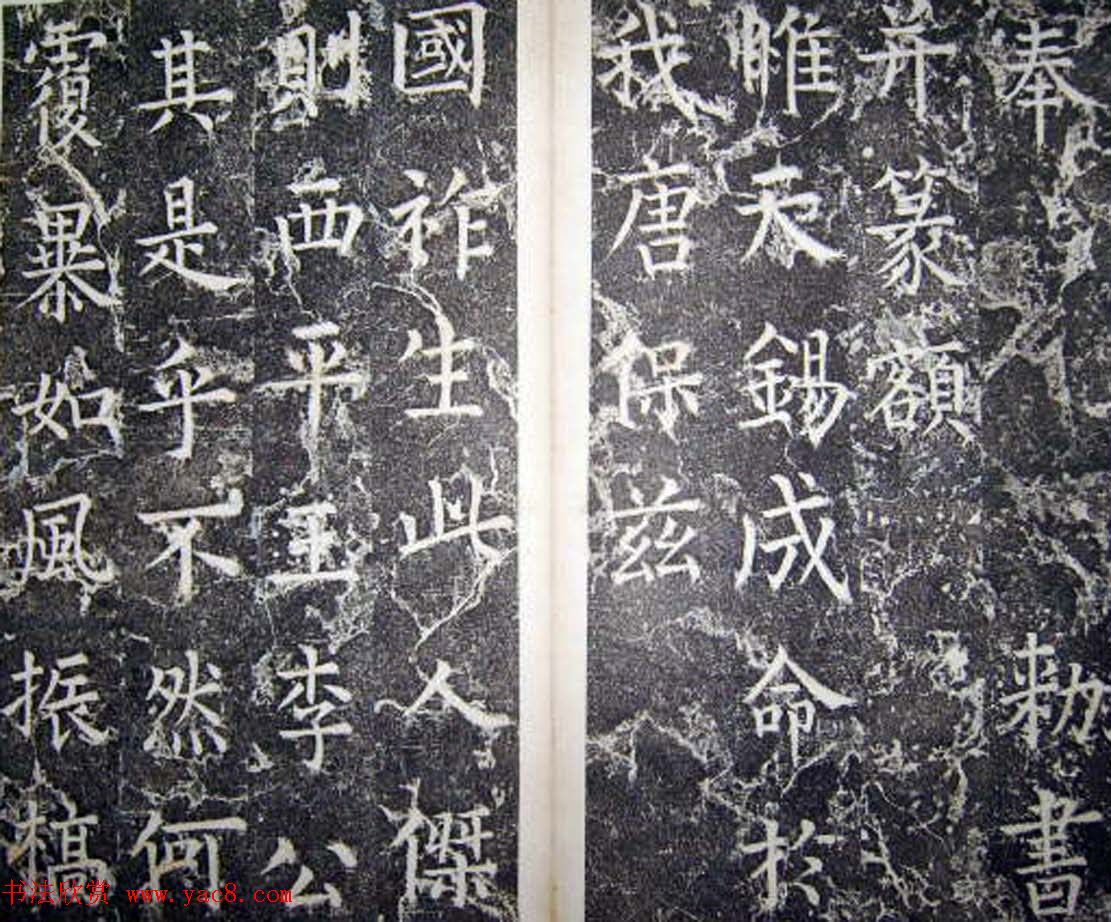 奉敕書
并篆額
惟天錫成命於
我唐保茲
國祚生此人傑
則西平王李公
其是乎不然何
覆暴如風振槁
书法欣赏 www.yac8.com